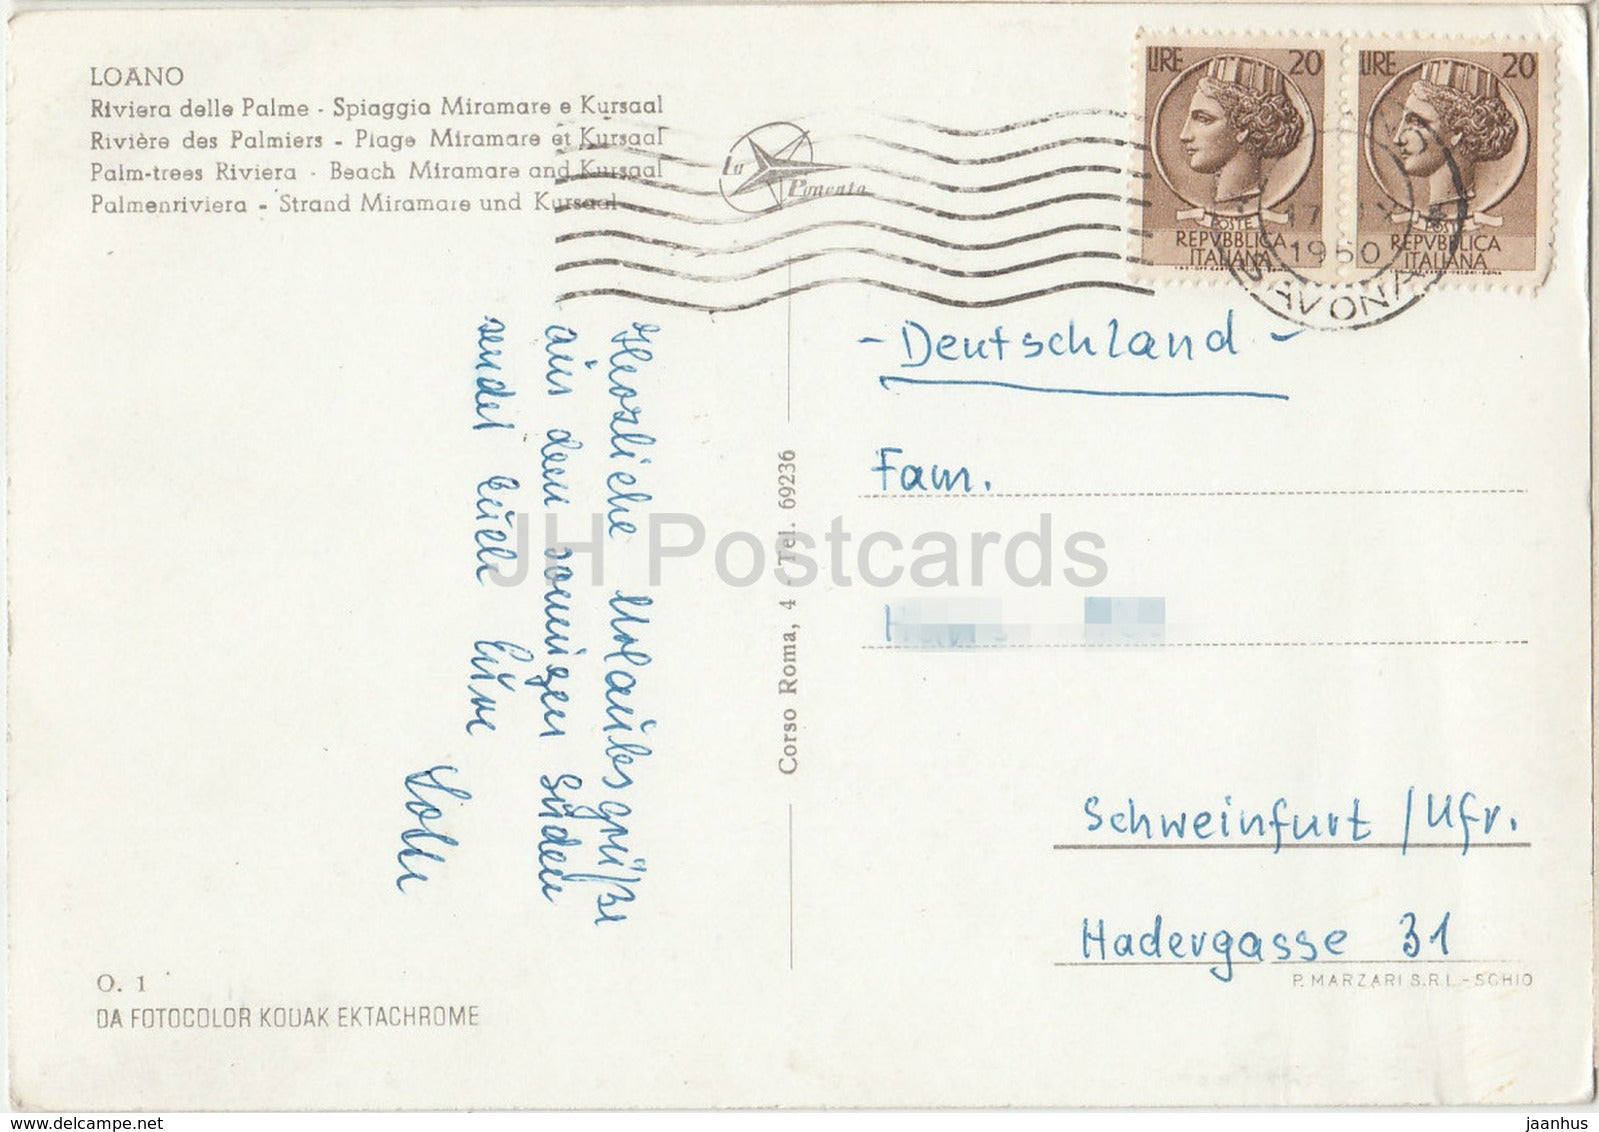 LOANO
Riviera delle Palme - Spiaggia Miramare e Kursaal
Rivière des Palmiers - Plage Miramare et Kursaal
Palm-trees Riviera - Beach Miramare and Kursaal
Palmenriviera - Strand Miramare und Kursaal
La Ponente
LIRE 20
POSTE
REPVBBLICA
ITALIANA
LIRE 20
POSTE
REPVBBLICA
ITALIANA
17
1960
SAVONA
Herzliche Urlaubsgrüße
aus dem sonnigen Süden
sendet Euch Eure
- Deutschland -
Fam.
Schweinfurt / Ufr.
Hadergasse 31
Corso Roma, 4 - Tel. 69236
JH Postcards
O. 1
DA FOTOCOLOR KODAK EKTACHROME
P. MARZARI S.R.L. - SCHIO
delcampe.net
jaanhus